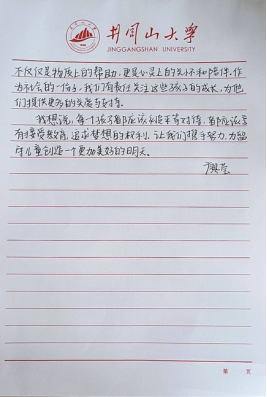 井冈山大学
JINGGANGSHAN UNIVERSITY
不仅仅是物质上的帮助,更是心灵上的关怀和陪伴。作
为社会的一份子,我们有责任关注这些孩子的成长,为他
们提供更多的关爱与支持。
我想说,每一个孩子都应该得到平等对待,都应该享
有接受教育、追求梦想的权利。让我们携手努力,为留
守儿童创造一个更加美好的明天。
第 页